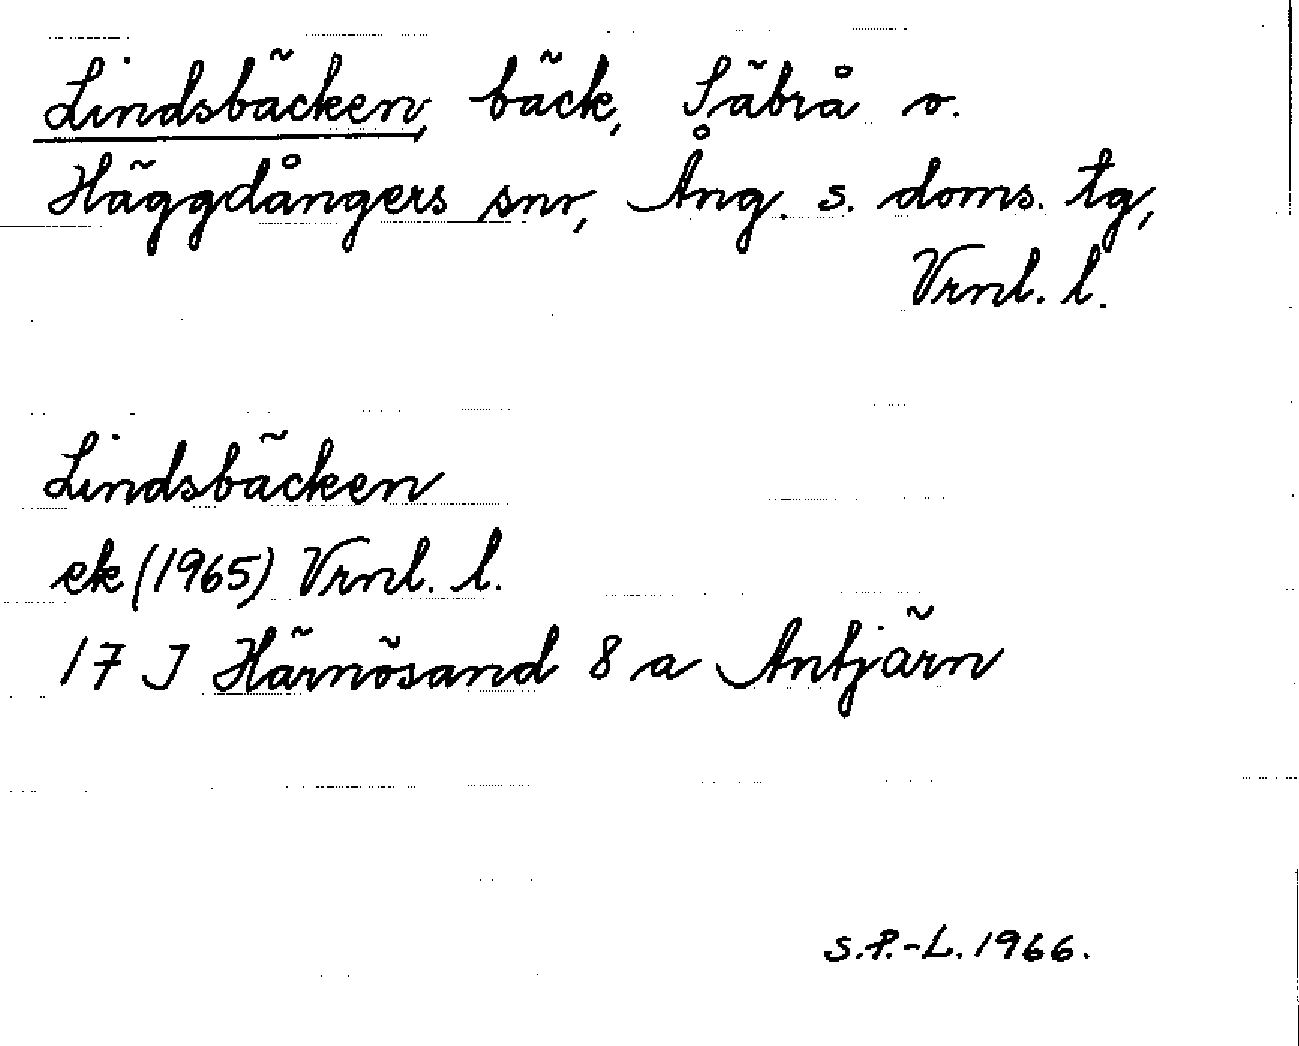 Lindsbäcken, bäck, Säbrå o.
Häggdångers snr, Ång. s. doms. tg,
Vrnl. l.
Lindsbäcken
ek (1965) Vrnl. l.
17 J Härnösand 8 a Antjärn
S.P.-L. 1966.